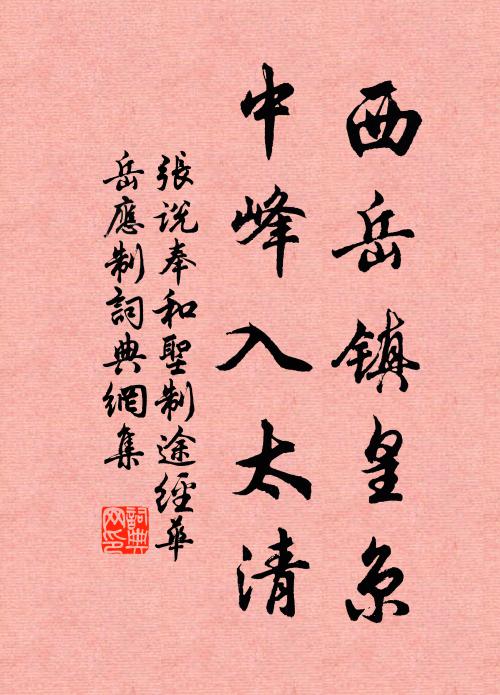 西岳镇皇京
中峰入太清
張説奉和聖制途經華
岳應制詞典網集
詞典网印